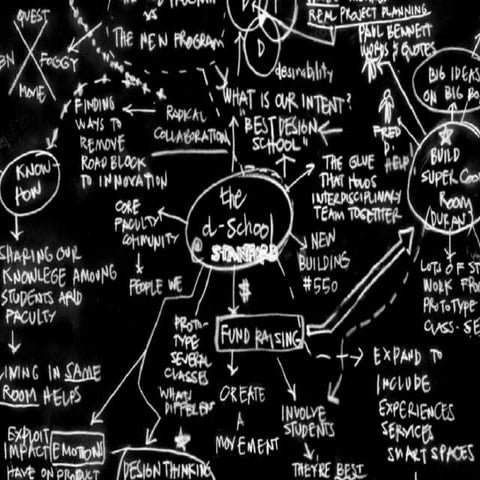 QUEST
FOGGY
MOVIE
VS
THE NEW PROGRAM
D
desirability
REAL PROJECT PLANNING
PAUL BENNETT
WORDS & QUOTES
BIG IDEAS
ON BIG
FINDING
WAYS TO
REMOVE
ROAD BLOCK
TO INNOVATION
RADICAL
COLLABORATION
WHAT IS OUR INTENT?
"BEST DESIGN
SCHOOL"
FRED
D.
HELP
BUILD
SUPER COOL
ROOM
(DURAN)
KNOW
HOW
THE GLUE
THAT HOLDS
INTERDISCIPLINARY
TEAM TOGETHER
CORE
FACULTY
COMMUNITY
the
d-School
@ STANFORD
NEW
BUILDING
#550
SHARING OUR
KNOWLEGE AMOUNG
STUDENTS AND
FACULTY
PEOPLE WE
$
LOTS OF
WORK FROM
PROTOTYPE
CLASS
PROTO-
TYPE
SEVERAL
CLASSES
WHAT'S
DIFFERENT
FUND RAISING
EXPAND TO
INCLUDE
EXPERIENCES
SERVICES
SMART SPACES
IN SAME
ROOM HELPS
CREATE
A
MOVEMENT
INVOLVE
STUDENTS
EXPLOIT
IMPACT EMOTION
HAVE ON PRODUCT
DESIGN THINKING
THEY'RE BEST